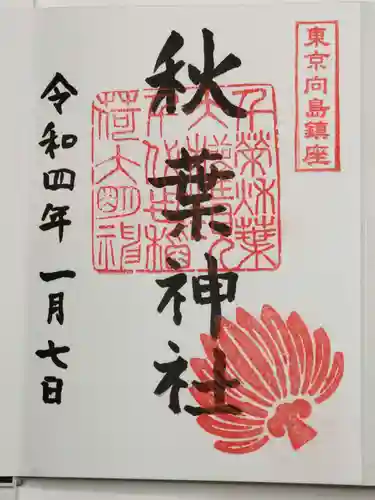 東京向島鎮座
秋葉神社
令和四年一月七日